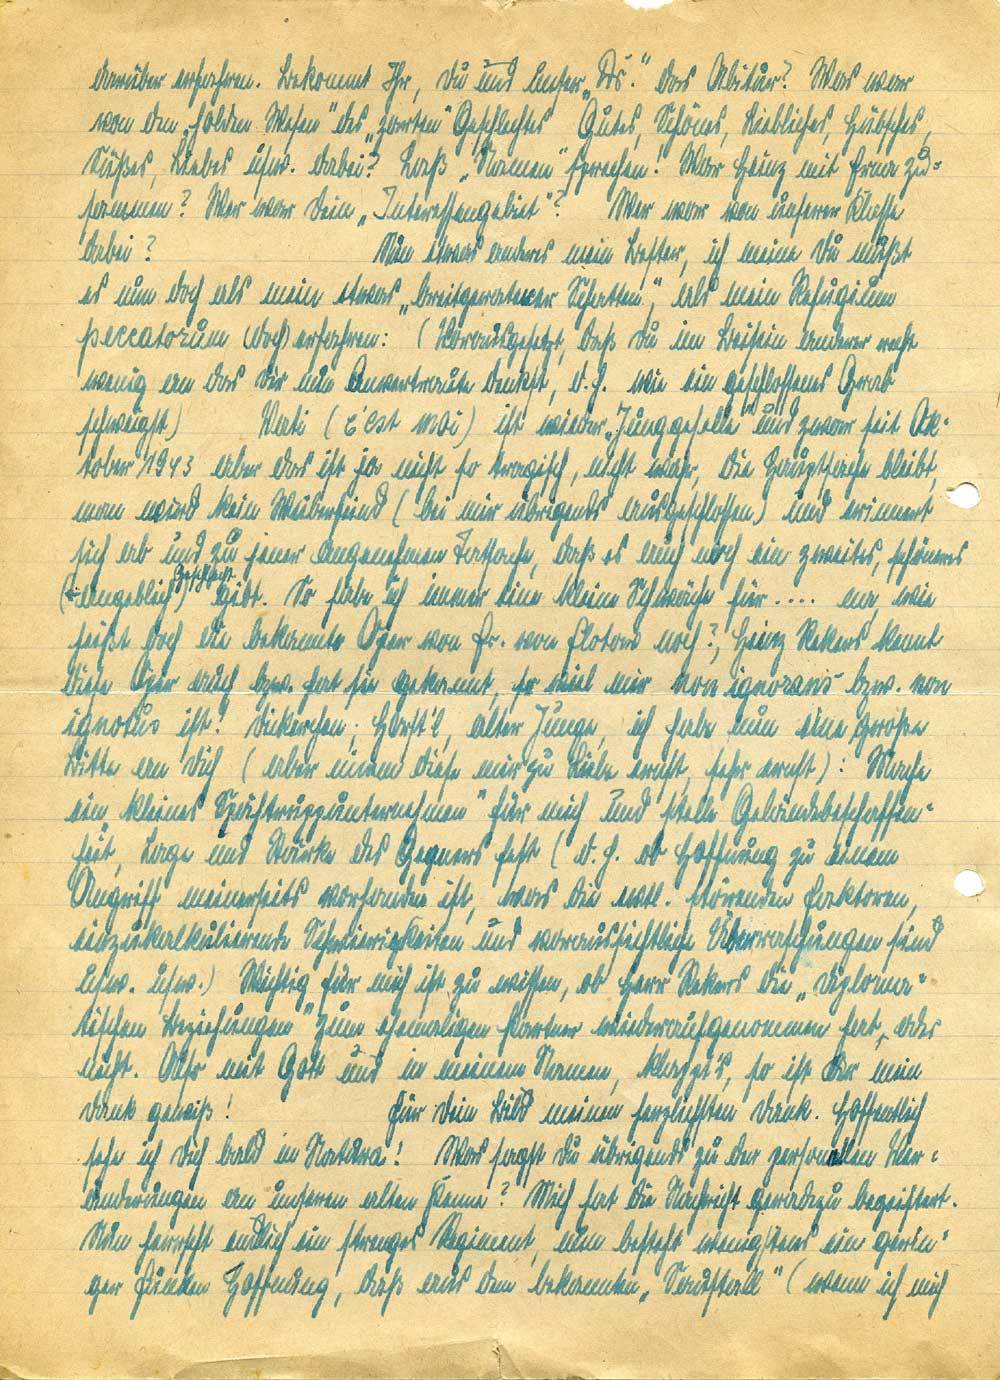 darüber erfahren. Bekommt Ihr, Du und Unser „Ds." das Abitur? Was war
von den „holden Wesen" des „zarten" Geschlechtes Gutes, Schönes, Liebliches, Hübsches,
Süßes, Liebes usw. dabei? Laß „Namen" sprechen! War Heinz mit Erna zu=
sammen? Wer war Dein „Interessengebiet"? Wer war von unserer Klasse
dabei? Nun etwas anderes mein Bester, ich meine Du mußt
es nun doch als mein etwas „breitgeratener Schatten", als mein Refugium
peccatorum (doch) erfahren: (Vorausgesetzt, daß Du im Beisein anderer recht
wenig an das Dir nun Anvertraute denkst, d.h. wie ein geschlossenes Grab
schweigst) Vati (c'est moi) ist wieder „Junggeselle" und zwar seit Ok=
tober 1943 aber das ist ja nicht so tragisch, nicht wahr, die Hauptsache bleibt,
man wird kein Weiberfeind (bei mir übrigends ausgeschlossen) und erinnert
sich ab und zu jener angenehmen Tatsache, daß es auch noch ein zweites, schöneres
(-angeblich) Geschlecht gibt. So habe ich immer eine kleine Schwäche für .... na, wie
heißt doch die bekannte Oper von Fr. von Flotow noch?, Heinz Rekers kennt
diese Oper auch bzw. hat sie gekannt, so viel mir non ignorans bzw. non
ignotus ist! Dickerchen, Horst'l, alter Junge, ich habe nun eine große
Bitte an Dich (aber nimm diese mir zu Liebe ernst, sehr ernst): Mache
ein „kleines Spähtruppunternehmen" für mich und stelle Geländebeschaffen=
heit, Lage und Stärke des Gegners fest (d.h. ob Hoffnung zu einem
Angriff meinerseits vorhanden ist, was die evtl. störenden Faktoren,
einzukalkulierende Schwierigkeiten und voraussichtliche Überraschungen sind
usw. usw.) Wichtig für mich ist zu wissen, ob Herr Rekers die „diploma=
tischen Beziehungen" zum ehemaligen Partner wiederaufgenommen hat, oder
nicht. Also mit Gott und in meinem Namen, klappt's, so ist Dir mein
Dank gewiß! Für Dein Bild meinen herzlichsten Dank. Hoffentlich
sehe ich Dich bald in Natura! Was sagst Du übrigends zu der personellen Ver=
änderungen an unserem alten Penne? Mich hat die Nachricht geradezu begeistert.
Nun herrscht endlich ein strenges Regiment, nun besteht wenigstens ein gerin=
ger Funken Hoffnung, daß aus dem bekannten „Saustall" (wenn ich mich